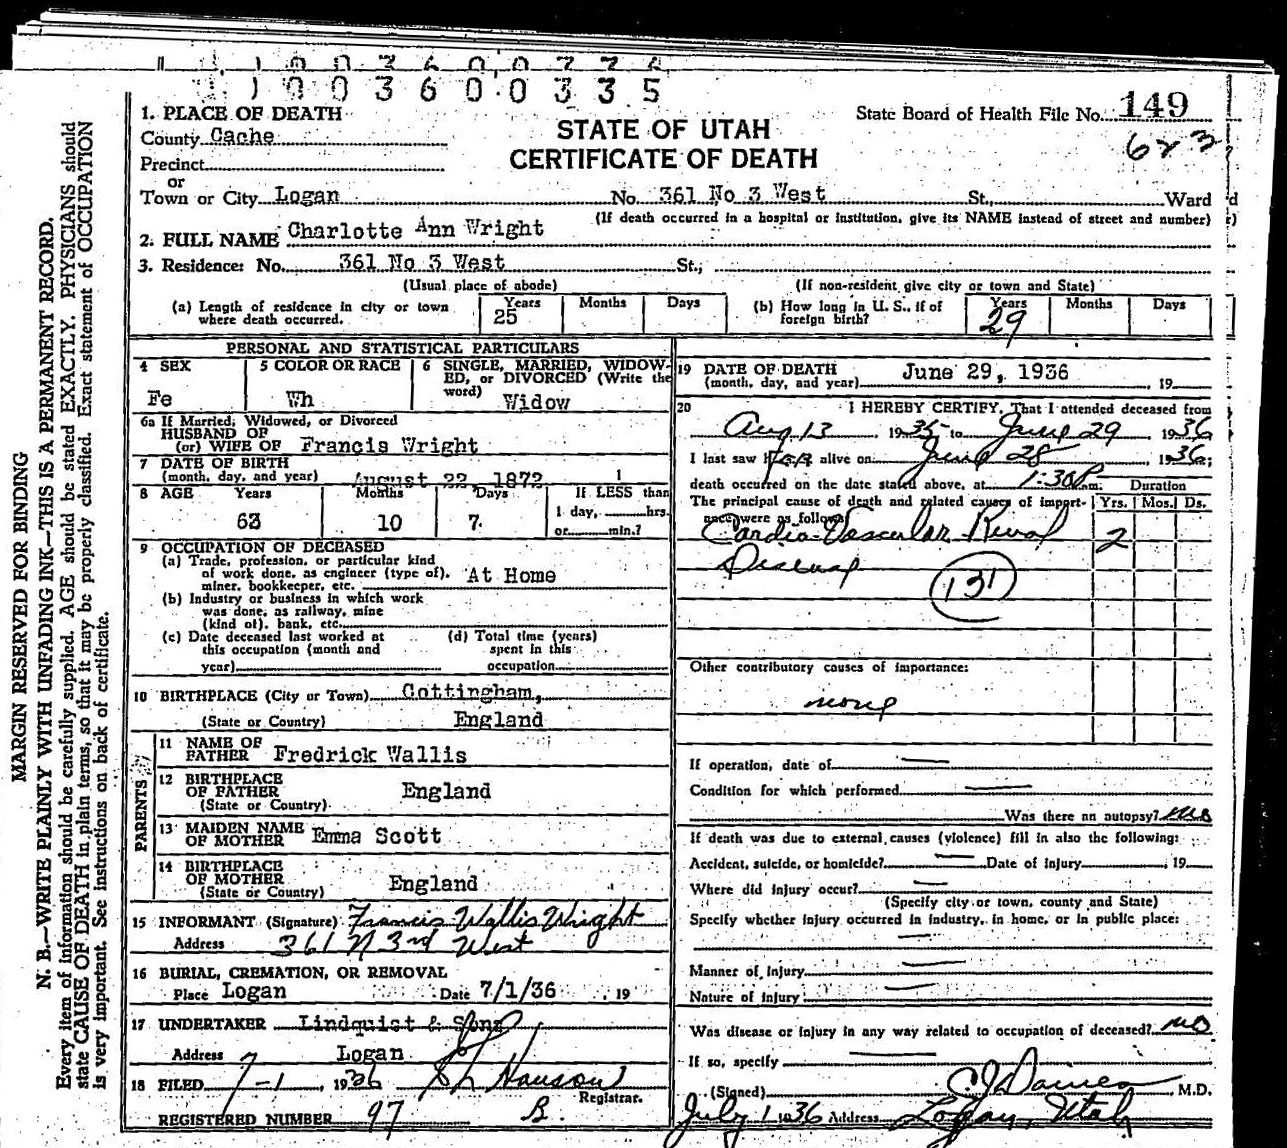 1 1 0 0 3 6 0 0 3 3 5
1. PLACE OF DEATH
State Board of Health File No. 149
County Cache
STATE OF UTAH
623
Precinct
CERTIFICATE OF DEATH
or
Town or City Logan No. 361 No 3 West St., Ward
(If death occurred in a hospital or institution, give its NAME instead of street and number)
2. FULL NAME Charlotte Ann Wright
3. Residence: No. 361 No 3 West St.;
(Usual place of abode) (If non-resident give city or town and State)
(a) Length of residence in city or town where death occurred. Years 25 Months Days
(b) How long in U. S., if of foreign birth? Years 29 Months Days
PERSONAL AND STATISTICAL PARTICULARS
4 SEX Fe
5 COLOR OR RACE Wh
6 SINGLE, MARRIED, WIDOW-
ED, or DIVORCED (Write the
word) Widow
6a If Married, Widowed, or Divorced
HUSBAND OF
(or) WIFE OF Francis Wright
7 DATE OF BIRTH
(month, day, and year) August 22 1872
8 AGE Years 63 Months 10 Days 7
If LESS than
1 day, hrs.
or min.?
9 OCCUPATION OF DECEASED
(a) Trade, profession, or particular kind
of work done, as engineer (type of),
miner, bookkeeper, etc. At Home
(b) Industry or business in which work
was done, as railway, mine
(kind of), bank, etc.
(c) Date deceased last worked at
this occupation (month and
year)
(d) Total time (years)
spent in this
occupation
10 BIRTHPLACE (City or Town) Cottingham,
(State or Country) England
PARENTS
11 NAME OF
FATHER Fredrick Wallis
12 BIRTHPLACE
OF FATHER England
(State or Country)
13 MAIDEN NAME
OF MOTHER Emma Scott
14 BIRTHPLACE
OF MOTHER England
(State or Country)
15 INFORMANT (Signature) Francis Wallis Wright
Address 361 N 3rd West
16 BURIAL, CREMATION, OR REMOVAL
Place Logan Date 7/1/36, 19
17 UNDERTAKER Lindquist & Sons
Address Logan
18 FILED 7-1, 1936 Hanson
Registrar.
REGISTERED NUMBER 97 B.
19 DATE OF DEATH
(month, day, and year) June 29, 1936, 19
20 I HEREBY CERTIFY, That I attended deceased from
Aug 13, 1935 to June 29, 1936
I last saw her alive on June 28, 1936;
death occurred on the date stated above, at 1:30P m.
Duration
The principal cause of death and related causes of import-
ance were as follows: Yrs. Mos. Ds.
Cardio-Vascular Renal 2
Disease
131
Other contributory causes of importance:
none
If operation, date of
Condition for which performed
Was there an autopsy? no
If death was due to external causes (violence) fill in also the following:
Accident, suicide, or homicide? Date of injury, 19
Where did injury occur?
(Specify city or town, county and State)
Specify whether injury occurred in industry, in home, or in public place:
Manner of injury
Nature of injury
Was disease or injury in any way related to occupation of deceased? no
If so, specify
(Signed) C J Daines, M.D.
July 1 1936 Address Logan, Utah
MARGIN RESERVED FOR BINDING
N. B.—WRITE PLAINLY WITH UNFADING INK—THIS IS A PERMANENT RECORD.
Every item of information should be carefully supplied. AGE should be stated EXACTLY. PHYSICIANS should
state CAUSE OF DEATH in plain terms, so that it may be properly classified. Exact statement of OCCUPATION
is very important. See instructions on back of certificate.